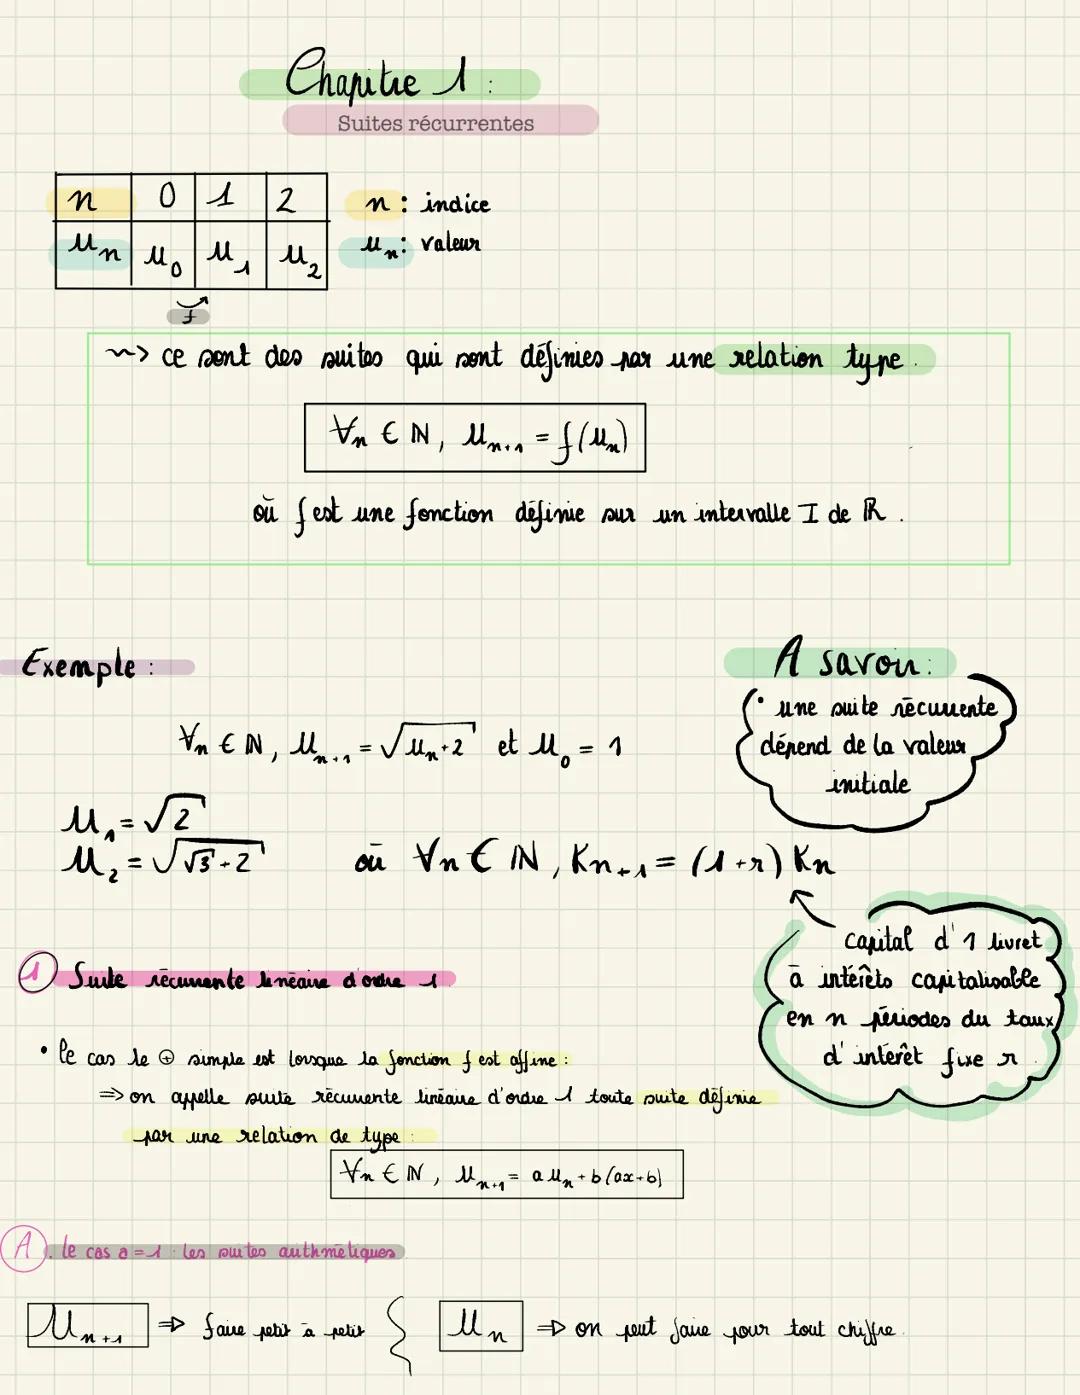 Chapitre 1 :
Suites récurrentes
n 0 1 2
Un U0 U1 U2
n : indice
Un : valeur
f
~> ce sont des suites qui sont définies par une relation type.
∀n ∈ ℕ, Un+1 = f(Un)
où f est une fonction définie sur un intervalle I de ℝ.
Exemple :
A savoir :
• une suite récurrente
dépend de la valeur
initiale
∀n ∈ ℕ, Un+1 = √(Un+2) et U0 = 1
U1 = √2
U2 = √(√3+2)
où ∀n ∈ ℕ, Kn+1 = (1+r) Kn
capital d'1 livret
à intérêts capitalisable
en n périodes du taux
d'intérêt fixe r
① Suite récurrente linéaire d'ordre 1
• le cas le ⊕ simple est lorsque la fonction f est affine :
=> on appelle suite récurrente linéaire d'ordre 1 toute suite définie
par une relation de type :
∀n ∈ ℕ, Un+1 = aUn+b (ax+b)
A. le cas a=1 : les suites arithmétiques
Un+1 => faire petit à petit
Un => on peut faire pour tout chiffre.